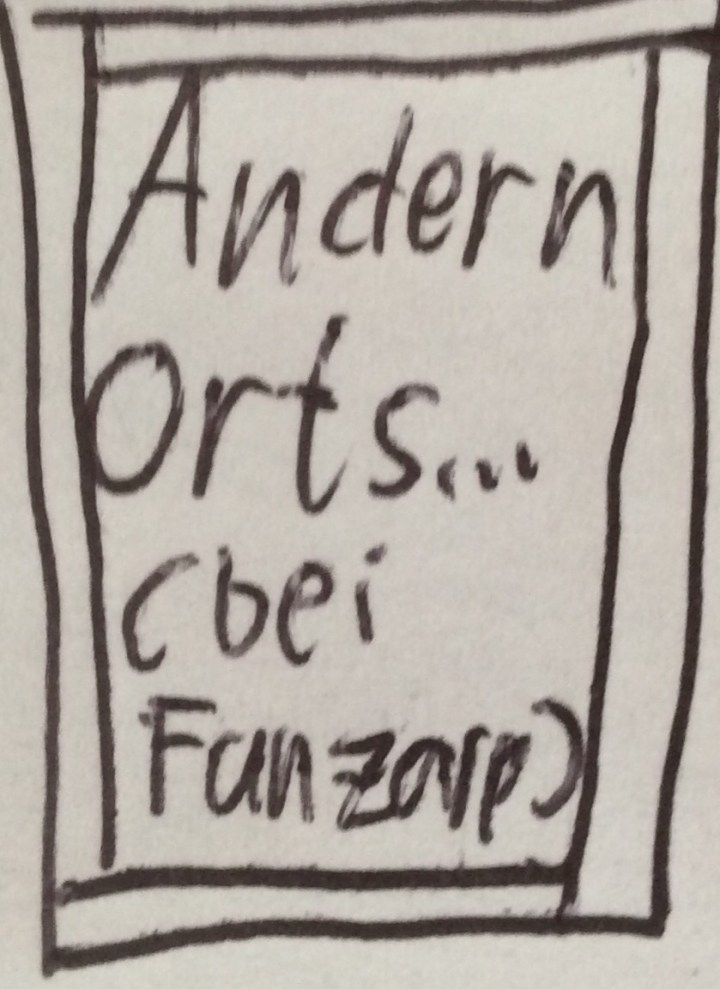 Andern
Orts...
(bei
Fanzarp)